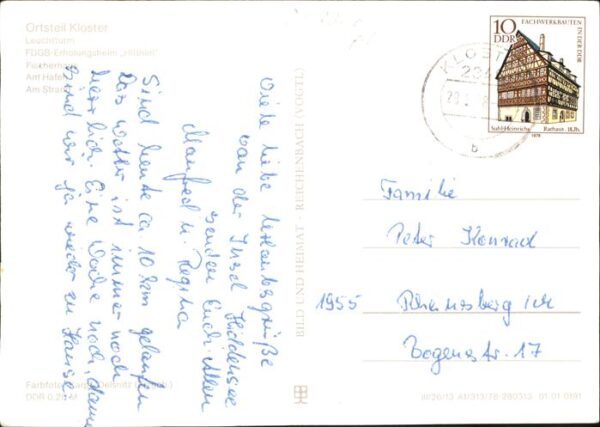 Ortsteil Kloster
Leuchtturm
FDGB-Erholungsheim „Hitthim“
Fischerhaus
Am Hafen
Am Strand
Viele liebe Urlaubsgrüße
von der Insel Hiddensee
senden Euch Allen
Manfred u. Regina
Sind heute ca 10 km gelaufen
Das Wetter ist immer noch
herrlich. Eine Woche noch, dann
sind wir ja wieder zu Hause.
BILD UND HEIMAT · REICHENBACH (VOGTL)
10
DDR
FACHWERKBAUTEN
IN DER DDR
Stolberg
Rathaus 15. Jh.
1978
KLOST
b
Familie
Peter Konrad
1955
Rheinsberg
Str. 17
Farbfotos:
DDR 0,25 M
III/26/13 A1/313/78 280313 01 01 0191